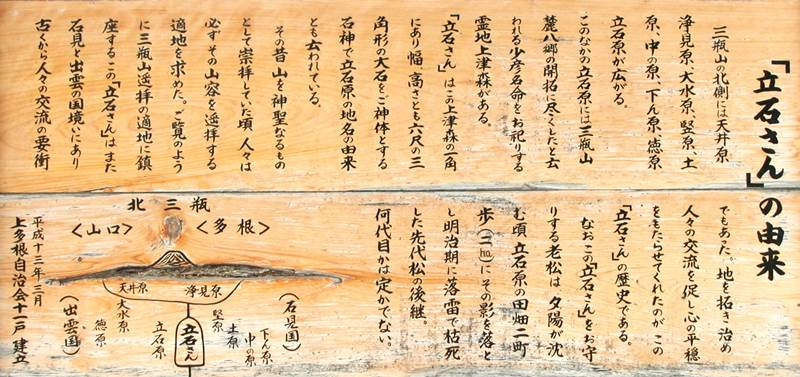 「立石さん」の由来
三瓶山の北側には天井原
浄見原、大水原、竪原、土
原、中の原、下ん原、徳原
立石原が広がる。
このなかの立石原には三瓶山
麓八郷の開拓に尽くしたと云
われる少彦名命をお祀りする
霊地上津森がある。
「立石さん」はこの上津森の一角
にあり幅、高さとも六尺の三
角形の大石をご神体とする
石神で立石原の地名の由来
とも云われている。
その昔山を神聖なるもの
として崇拝していた頃人々は
必ずその山容を遥拝する
適地を求めた。ご覧のよう
に三瓶山遥拝の適地に鎮
座するこの「立石さん」はまた
石見と出雲の国境いにあり
古くから人々の交流の要衝
でもあった。地を拓き治め
人々の交流を促し心の平穏
をもたらせてくれたのがこの
「立石さん」の歴史である。
なおこの「立石さん」をお守
りする老松は夕陽が沈
む頃立石原の田畑二町
歩(二㏊)にその影を落と
し明治期に落雷で枯死
した先代松の後継。
何代目かは定かでない。
北三瓶
<山口>
<多根>
天井原
浄見原
大水原
徳原
(出雲国)
立石原
立石さん
竪原
土原
中の原
下ん原
(石見国)
平成十三年三月
上多根自治会十一戸 建立